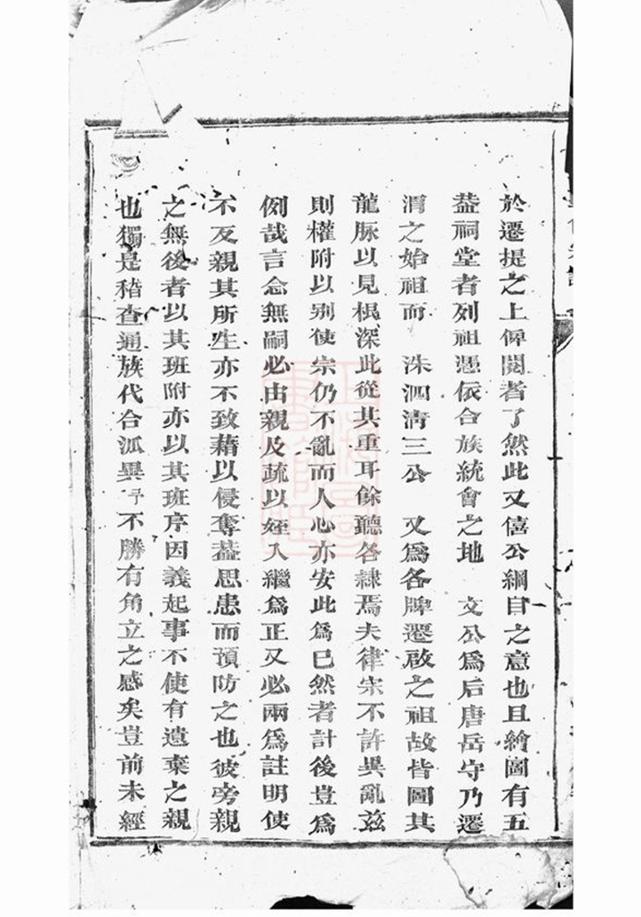 於遷提之上俾閱者了然此又僖公綱自之意也且繪圖有五
葢祠堂者列祖憑依合族統會之地 文公爲后唐岳守乃遷
渭之始祖而 洙泗淸三公 又爲各脾遷啟之祖故皆圖其
龍脉以見根深此從其重耳餘聽各隸焉夫律宗不許異亂兹
則權附以别使宗仍不亂而人心亦安此爲已然者計後豈爲
例哉言念無嗣必由親及疏以姪入繼爲正又必兩爲註明使
不反親其所生亦不致藉以侵奪葢思患而預防之也彼旁親
之無後者以其班附亦以其班序因義起事不使有遺棄之親
也獨是稽查通族代合派異予不勝有角立之感矣豈前未經